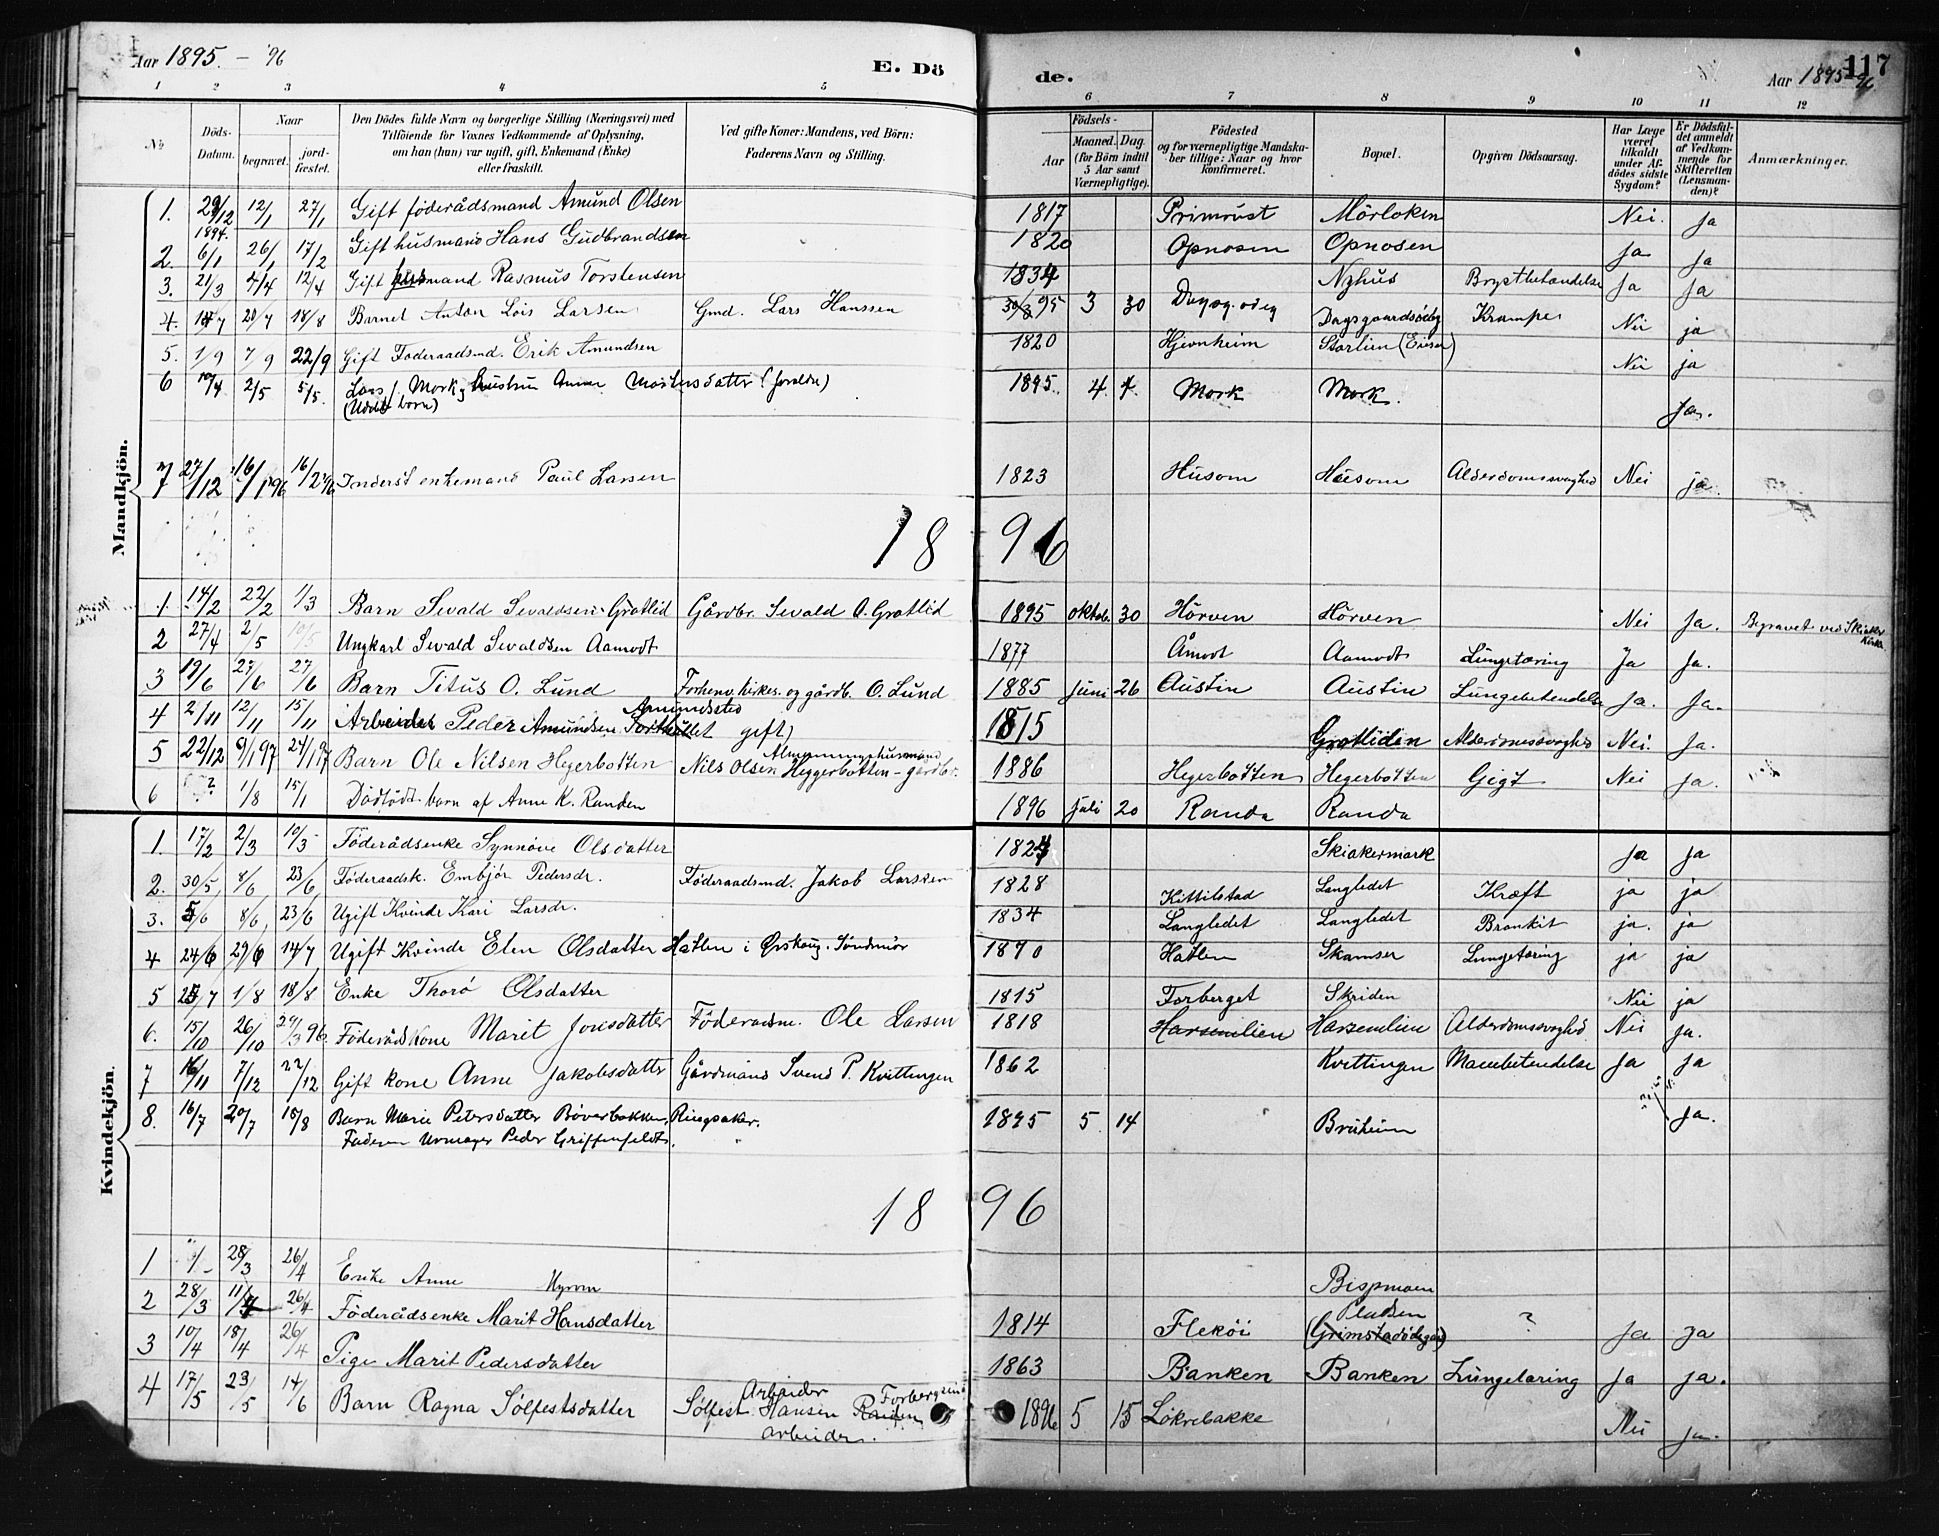 Aar 1895 - 96
E. Dö
de.
Aar 1895-96
117
1 2 3 4 5 6 7 8 9 10 11 12
No
Döds-Datum.
Naar
begravet.
jord-fæstet.
Den Dödes fulde Navn og borgerlige Stilling (Næringsvei) med
Tilföiende for Voxnes Vedkommende af Oplysning,
om han (hun) var ugift, gift, Enkemand (Enke)
eller fraskilt.
Ved gifte Koner: Mandens, ved Börn:
Faderens Navn og Stilling.
Födsels-
Aar
Maaned. Dag.
(for Börn indtil
5 Aar samt
Værnepligtige).
Födested
og for værnepligtige Mandska-
ber tillige: Naar og hvor
konfirmeret.
Bopæl.
Opgiven Dödsaarsag.
Har Læge
været
tilkaldt
under Af-
dödes sidste
Sygdom?
Er Dödsfal-
det anmeldt
af Vedkom-
mende for
Skifteretten
(Lensman-
den)?
Anmærkninger.
Mandkjön.
1. 29/12 1894. 12/1 27/1 Gift föderådsmand Amund Olsen 1817 Primrust Mörloken Nei. Ja
2. 6/1 26/1 17/2 Gift husmand Hans Gudbrandsen 1820 Opnosen Opnosen Ja Ja
3. 21/3 4/4 12/4 Gift husmand Rasmus Torstensen 1834 Nyhus Brystbetændelse Ja Ja
4. 14/7 20/7 18/8 Barnet Anton Lois Larsen Gmd. Lars Hanssen 30/3 95 3 30 Krampe Nei ja
5. 1/9 7/9 22/9 Gift Föderaadsmd. Erik Amundsen 1820 Hjevnheim Storlien Nei ja
6 10/4 2/5 5/5. Lars Mork, hustru Anne (forældre) 1895. 4. 4. Mork Mork. Ja.
(Udöbt barn)
7 27/12 16/1 96 16/2 96 Inderst enkemand Paul Larsen 1823 Husom Husom Alderdomssvaghed Nei ja.
18 96
1. 14/2 22/2 1/3 Barn Sevald Sevaldsen Grotlid Gårdbr. Sevald O. Grotlid 1895 oktob. 30 Hörven Hörven Nei Ja. Begravet ved Skiaker Kirke
2 27/4 2/5 10/5 Ungkarl Sevald Sevaldsen Aamodt 1877 Åmodt Aamodt Lungetæring Ja Ja.
3 19/6 27/6 27/6 Barn Titus O. Lund Forhenv. kirkes. og gårdb. O. Lund 1885 Juni 26 Austin Austin Lungebetændelse Ja. Ja.
4 2/11 12/11 15/11 Arbeider Peder Amundsen gift) 1815 Grotliden Alderdomssvaghed Nei. Ja.
5 22/12 9/1 97 24/1 97 Barn Ole Nilsen Hegerbotten Nils Olsen Heggerbotten - gårdbr. 1886 Hegerbotten Hegerbotten Gigt Nei Ja.
6 ? 1/8 15/1 Dödfödt barn af Anne K. Randen 1896 Juli 20 Randa Randa
Kvindekjön.
1. 17/2 2/3 10/3 Föderådsenke Synnöve Olsdatter Skiakermark Ja Ja
2. 30/5 8/6 23/6 Föderaadsk. Embjör Pedersdr. Föderaadsmd. Jakob Larssen 1828 Kittilstad Langledet Kræft ja ja
3. 5/6 8/6 23/6 Ugift Kvinde Kari Larsdr. 1834 Langledet Langledet Bronkit ja. ja
4 24/6 29/6 14/7 Ugift Kvinde Elen Olsdatter Hatlen i Ørskoug. Söndmör 1870 Hatlen Skamser Lungetæring ja ja
5 25/7 1/8 18/8 Enke Thorø Olsdatter 1815 Forberget Skriden Nei ja
6. 15/10 26/10 29/3 96. Föderåds Kone Marit Jonsdatter Föderaadsm. Ole Larsen 1818 Harsemlien Harsemlien Alderdomssvaghed Nei Ja.
7 16/11 7/12 22/12 Gift kone Anne Jakobsdatter Gårdmand Svend P. Kvittingen 1862 Kvittingen Mavebetændelse Ja Ja
8. 16/7 20/7 18/8 Barn Marie Petersdatter Böverbakken, Ringsaker. 1895 5. 14 Bruheim Ja.
Faderen Urmager Peder Griffenfeldt.
18 96
1 28/3 26/4 Enke Anne Myrom Bispmoen
2 28/3 11/4 26/4 Föderådsenke Marit Hansdatter 1814 Fleköi Pladsen (Grimstadödegård) ? Ja Ja
3 10/4 18/4 26/4 Pige Marit Pedersdatter 1863 Banken Banken Lungetæring Ja Ja.
4 17/5 23/5 14/6 Barn Ragna Sölfestsdatter Sölfest Hansen Randen 1896 5 15 Lökrebakke Nei Ja.
Arbeider
arbeider.